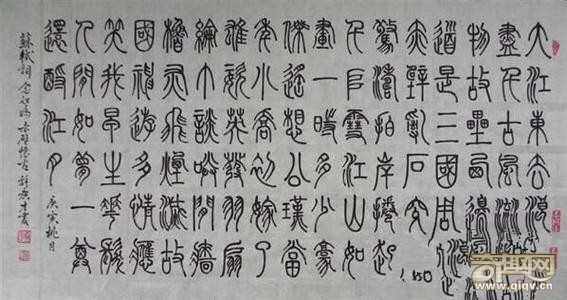 大江東去浪淘
盡千古風流人
物故壘西邊人
道是三國周郎
赤壁
驚濤拍岸捲起
千堆雪江山如
畫一時多少豪
傑遙想公瑾當
年小喬初嫁了
雄姿英發羽扇
綸巾談笑間檣
櫓灰飛煙滅故
國神遊多情應
笑我早生華髮
人間如夢一尊
還酹江月
庚寅桃月
蘇軾詞念奴嬌赤壁懷古
奇趣网
www.qiqv.cn